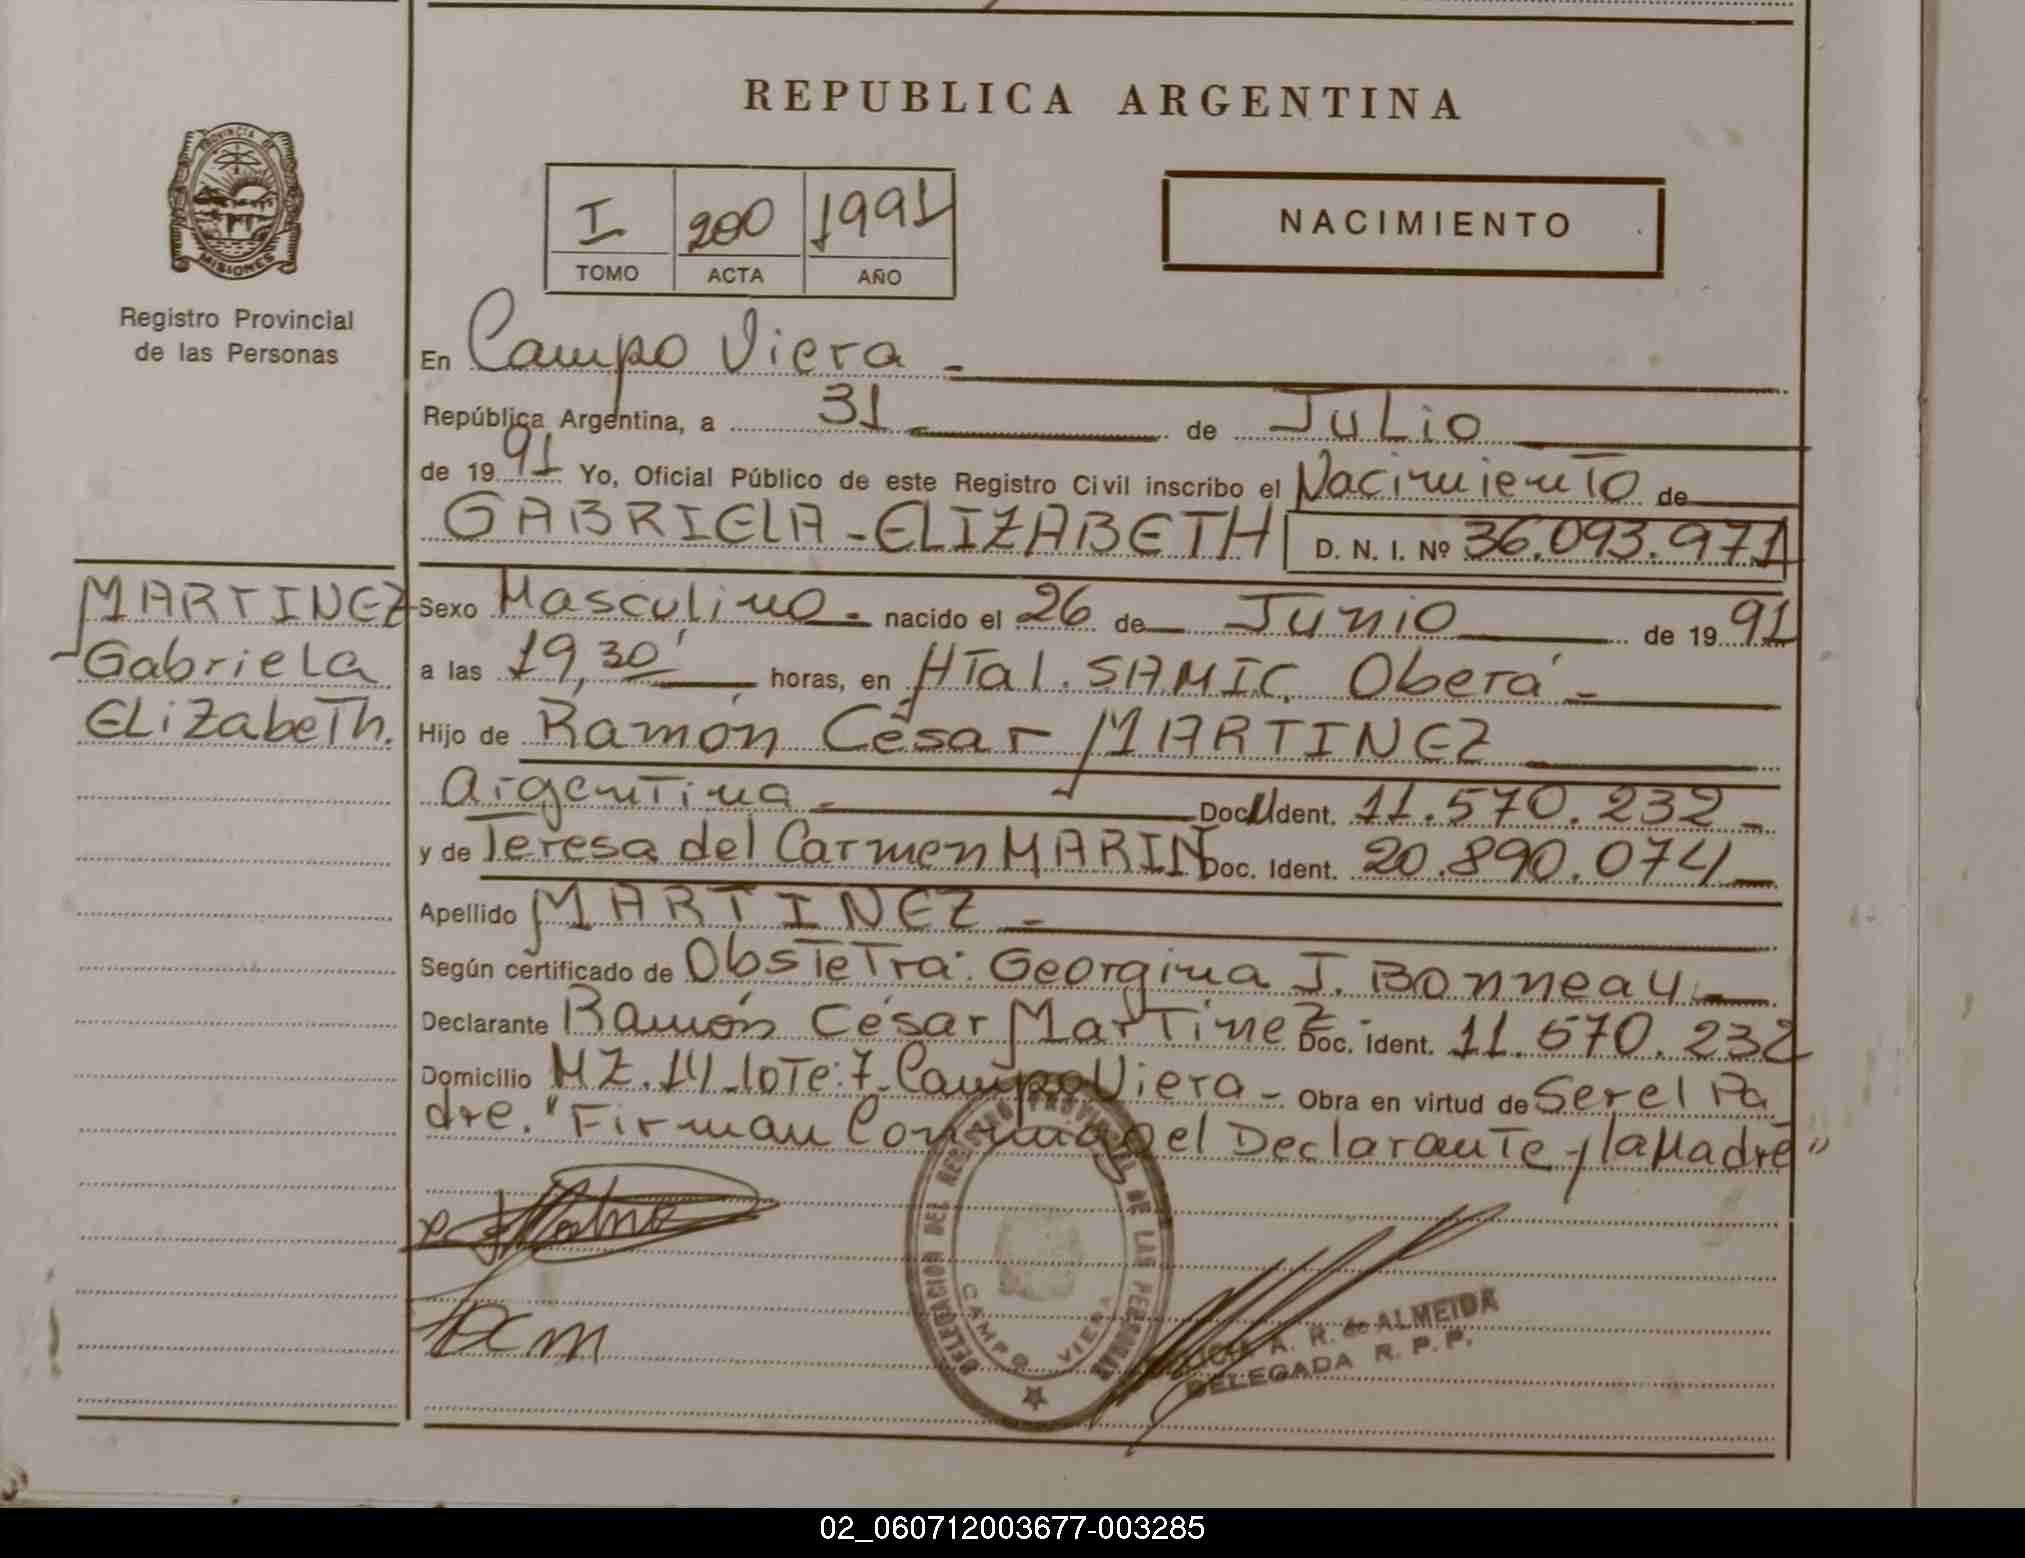 REPUBLICA ARGENTINA
PROVINCIA DE
MISIONES
Registro Provincial
de las Personas
I 200 1991
TOMO ACTA AÑO
NACIMIENTO
En Campo Viera -
República Argentina, a 31 de Julio
de 1991 Yo, Oficial Público de este Registro Civil inscribo el Nacimiento de
GABRIELA - ELIZABETH D. N. I. Nº 36.093.971
MARTINEZ
Gabriela
Elizabeth.
Sexo Masculino - nacido el 26 de Junio de 1991
a las 19,30' horas, en HTal. SAMIC. Oberá -
Hijo de Ramón César MARTINEZ
Argentina - Doc. Ident. 11.570.232 -
y de Teresa del Carmen MARIN Doc. Ident. 20.890.074 -
Apellido MARTINEZ -
Según certificado de Obstetra: Georgina J. Bonneau -
Declarante Ramón César Martinez - Doc. Ident. 11.570.232
Domicilio MZ. 14 - loTe: 7 - Campo Viera - Obra en virtud de Ser el Pa
dre. "Firman Conmigo el Declarante y la Madre"
DELEGACION DEL REGISTRO PROVINCIAL DE LAS PERSONAS
CAMPO VIERA
A. R. de ALMEIDA
DELEGADA R. P. P.
02_060712003677-003285